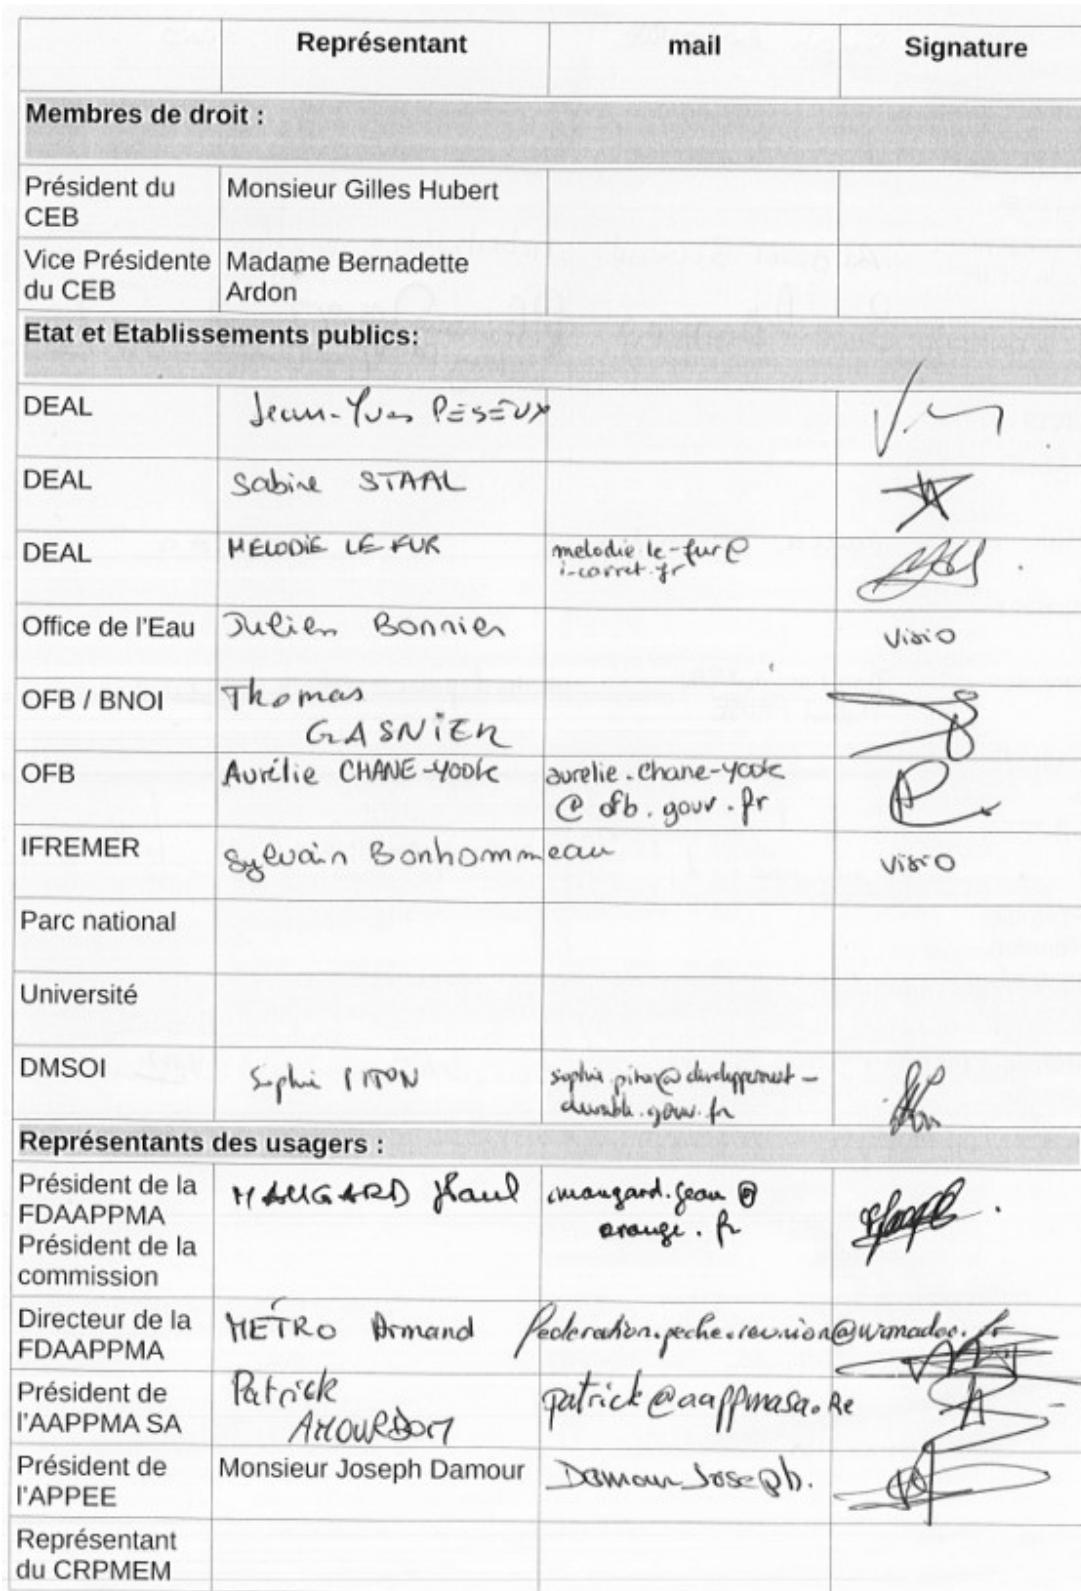 Représentant mail Signature
Membres de droit :
Président du Monsieur Gilles Hubert
CEB
Vice Présidente Madame Bernadette
du CEB Ardon
Etat et Etablissements publics:
DEAL Jean-Yves PESEUX
DEAL Sabine STAAL
DEAL MELODIE LE FUR melodie le-fur@
i-carret.fr
Office de l'Eau Julien Bonnier Visio
OFB / BNOI Thomas
GASNIER
OFB Aurélie CHANE-YOOK aurelie.chane-yook
@ofb.gouv.fr
IFREMER Sylvain Bonhommeau Visio
Parc national
Université
DMSOI Sophie PITON sophie.piton@developpement-
durable.gouv.fr
Représentants des usagers :
Président de la MAUGARD maugard.jean@
FDAAPPMA orange.fr
Président de la
commission
Directeur de la METRO Armand federation.peche.reunion@wanadoo.fr
FDAAPPMA
Président de Patrick patrick@aappmasa.Re
l'AAPPMA SA AMOURDOM
Président de Monsieur Joseph Damour Damour Joseph.
l'APPEE
Représentant
du CRPMEM